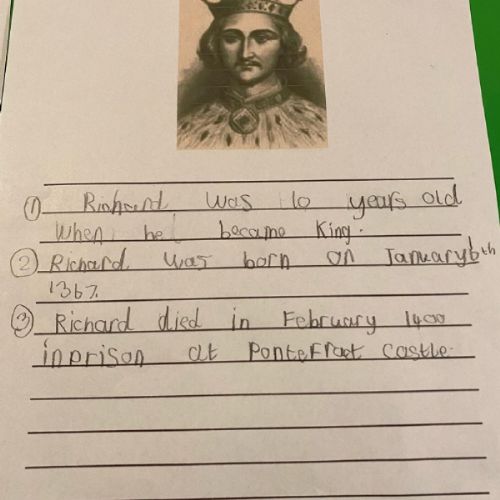 ① Richard was 10 years old
when he became King.
② Richard was born on January 6th
1367.
③ Richard died in February 1400
in prison at Pontefract castle.